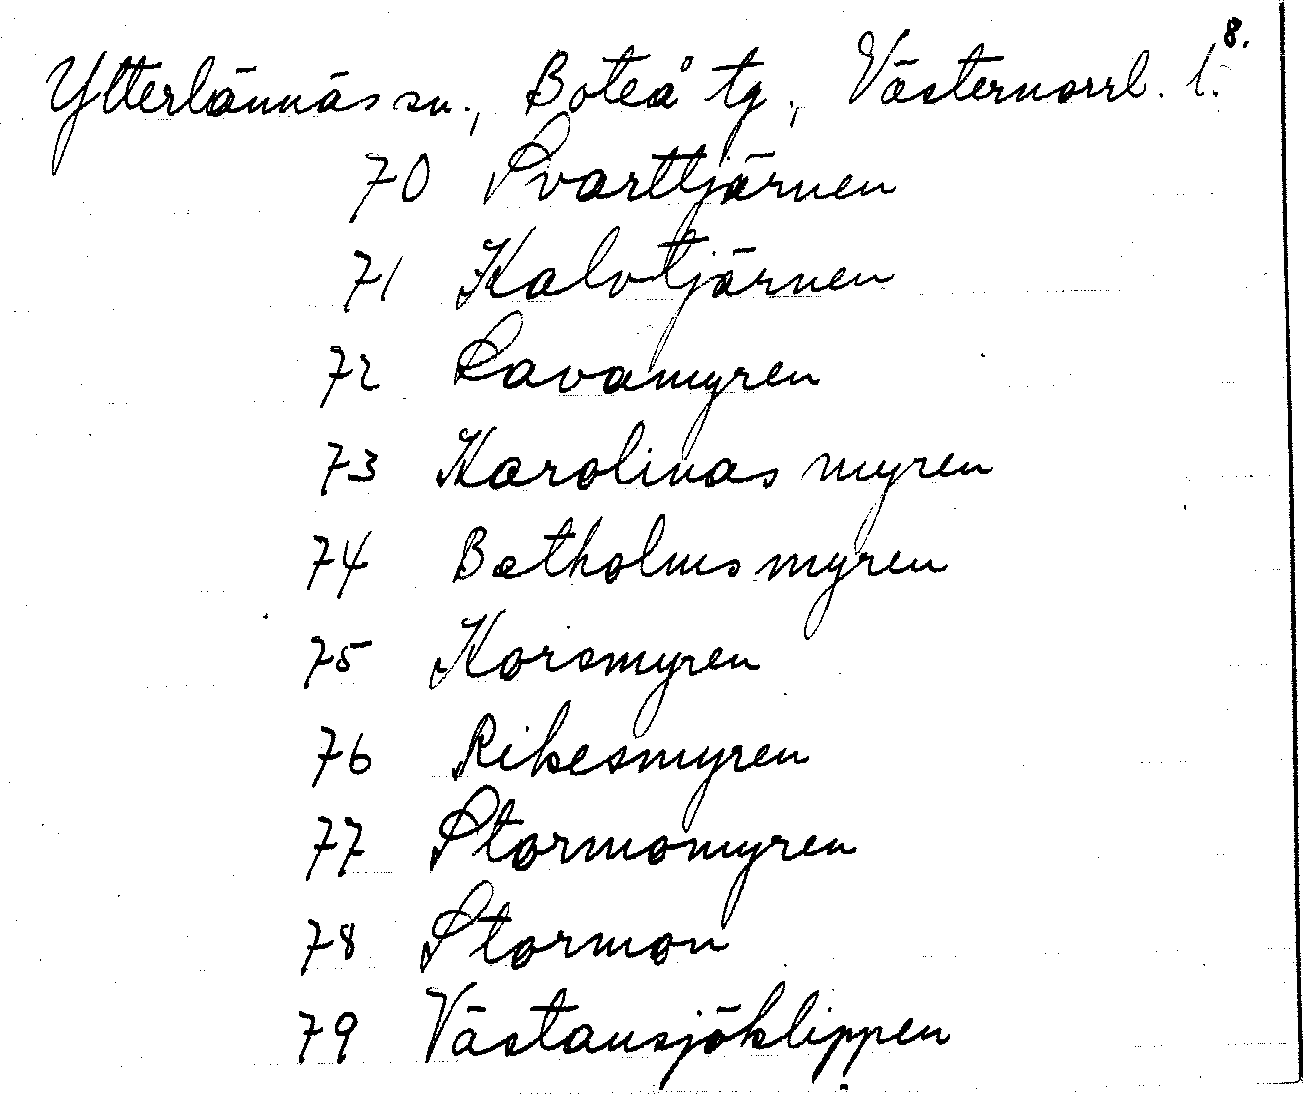 8.
Ytterlännäs sn., Boteå tg, Västernorrl. l.
70 Svarttjärnen
71 Kalvtjärnen
72 Ravamyren
73 Karolinas myren
74 Botholmsmyren
75 Korsmyren
76 Rikesmyren
77 Stormomyren
78 Stormon
79 Västansjöklippen